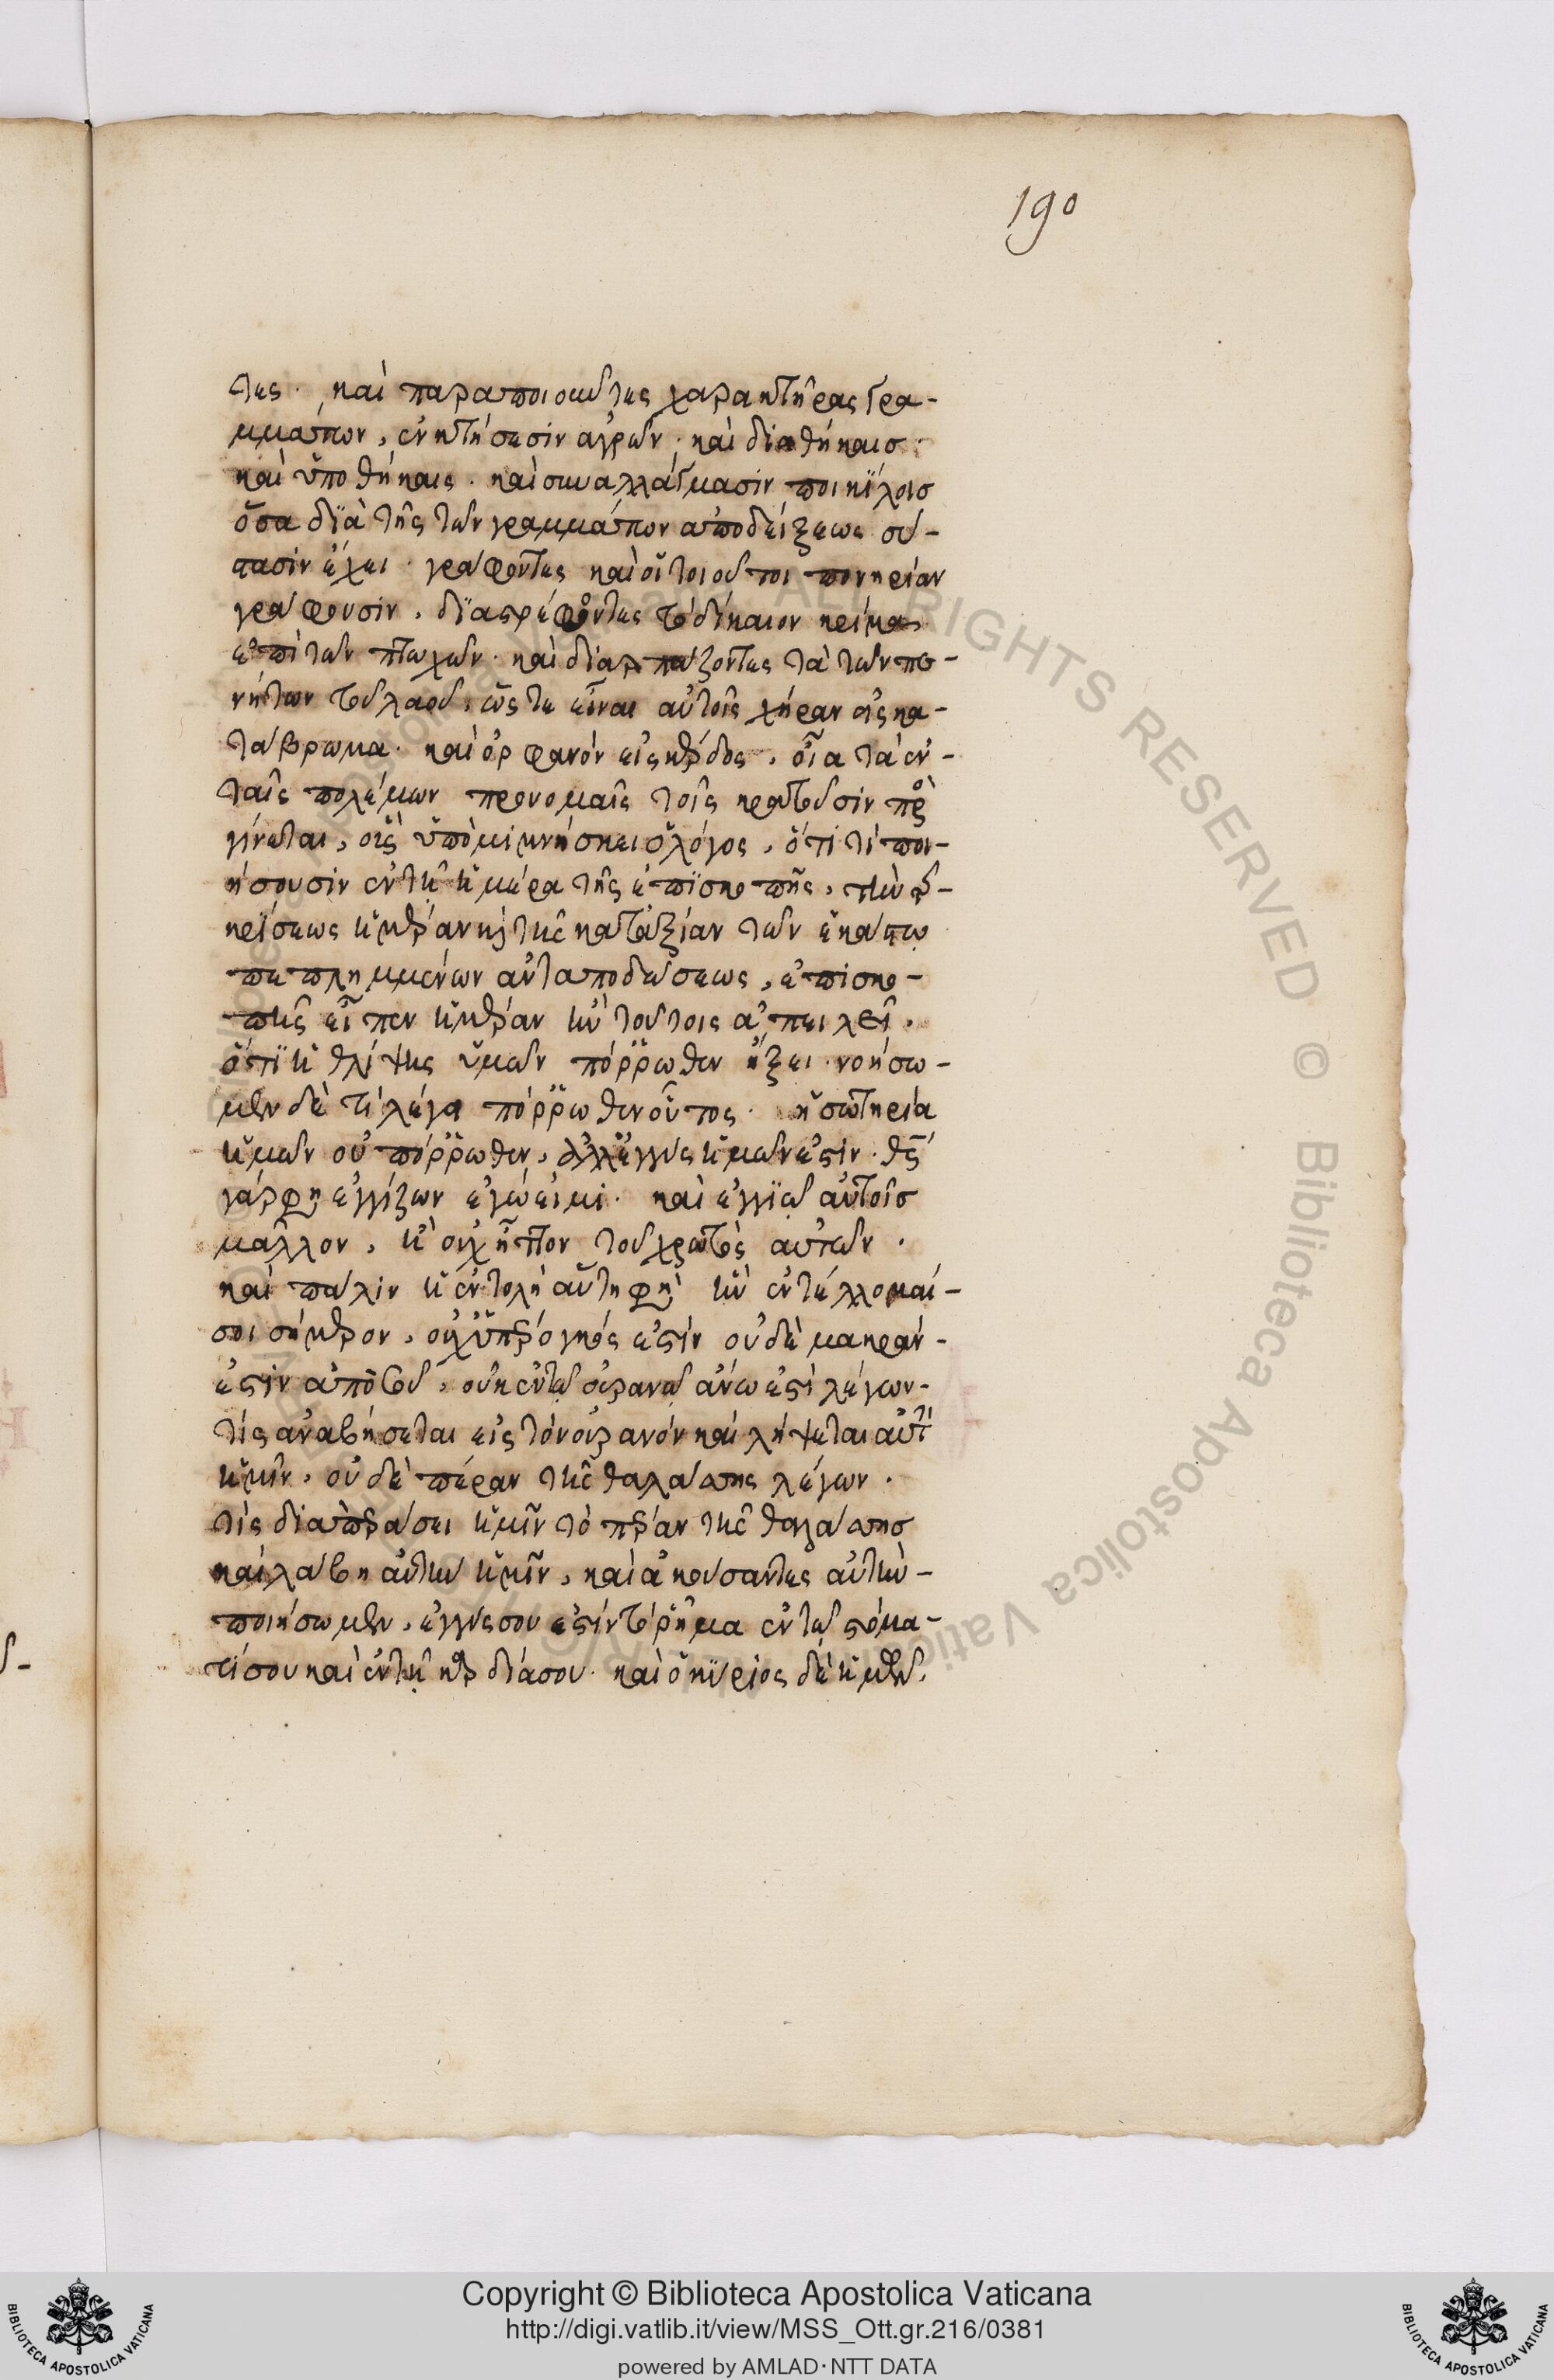 190
τες · καὶ παραποιοῦντες χαρακτῆρας γρα-
μμάτων, ἐν κτήσεσιν ἀγρῶν · καὶ διαθήκαις ·
καὶ ὑποθήκαις · καὶ συναλλάγμασιν ποικίλοις
ὅσα διὰ τῆς τῶν γραμμάτων ἀποδείξεως σύ-
στασιν ἔχει · γράφοντες καὶ οἱ τοιοῦτοι πονηρίαν
γράφουσιν, διαστρέφοντες τὸ δίκαιον κρίμα
ἐπὶ τῶν πτωχῶν · καὶ διαρπάζοντες τὰ τῶν πε-
νήτων τοῦ λαοῦ, ὥστε εἶναι αὐτοῖς χήραν εἰς κα-
τάβρωμα · καὶ ὀρφανὸν εἰς κέρδος, οἷα τὰ ἐν
ταῖς πολέμων προνομαῖς τοῖς κρατοῦσιν
γίνεται, οἷς ὑπομιμνήσκει ὁ λόγος, ὅτι τί ποι-
ήσουσιν ἐν τῇ ἡμέρα τῆς ἐπισκοπῆς, τὴν
κρίσεως ἡμέραν καὶ τῆς κατ' ἀξίαν τῶν ἑκάστω
πεπλημμενων ἀνταποδώσεως, ἐπισκο-
πῆς εἶπεν ἡμέραν ἣν τούτοις ἀπειλεῖ.
ὅτι ἡ θλίψις ὑμῶν πόρρωθεν ἥξει · νοήσω-
μεν δὲ τί λέγει πόρρωθεν οὗτος · ἡ σωτηρία
ἡμῶν οὐ πόρρωθεν, ἀλλ' ἐγγὺς ἡμῶν ἐστιν · θς
γάρ φη ἐγγίζων ἐγώ εἰμι · καὶ ἐγγιῶ αὐτοῖς
μᾶλλον, ἢ οὐχ ἧττον τοῦ χρωτὸς αὐτῶν ·
καὶ πάλιν ἡ ἐντολὴ αὕτη φη ἣν ἐντέλλομαί
σοι σήμερον, οὐχ ὑπέρογκός ἐστιν οὐδὲ μακρὰν
ἐστιν ἀπὸ σοῦ, οὐκ ἐν τῶ οὐρανῶ ἄνω ἐστὶ λέγων
τίς ἀναβήσεται εἰς τὸν οὐρανὸν καὶ λήψεται αὐτὴ
ἡμῖν, οὐδὲ πέραν τῆς θαλάσσης λέγων ·
τίς διαπεράσει ἡμῖν τὸ πέραν τῆς θαλάσσης
καὶ λάβη αὐτὴν ἡμῖν, καὶ ἀκούσαντες αὐτὴν
ποιήσωμεν, ἐγγύς σου ἐστὶν τὸ ῥῆμα ἐν τῶ στόμα-
τί σου καὶ ἐν τῇ καρδία σου · καὶ ὁ κύριος δὲ ἡμῶν.
Copyright © Biblioteca Apostolica Vaticana
http://digi.vatlib.it/view/MSS_Ott.gr.216/0381
powered by AMLAD·NTT DATA
BIBLIOTECA APOSTOLICA VATICANA
BIBLIOTECA APOSTOLICA VATICANA
ALL RIGHTS RESERVED © Biblioteca Apostolica Vaticana